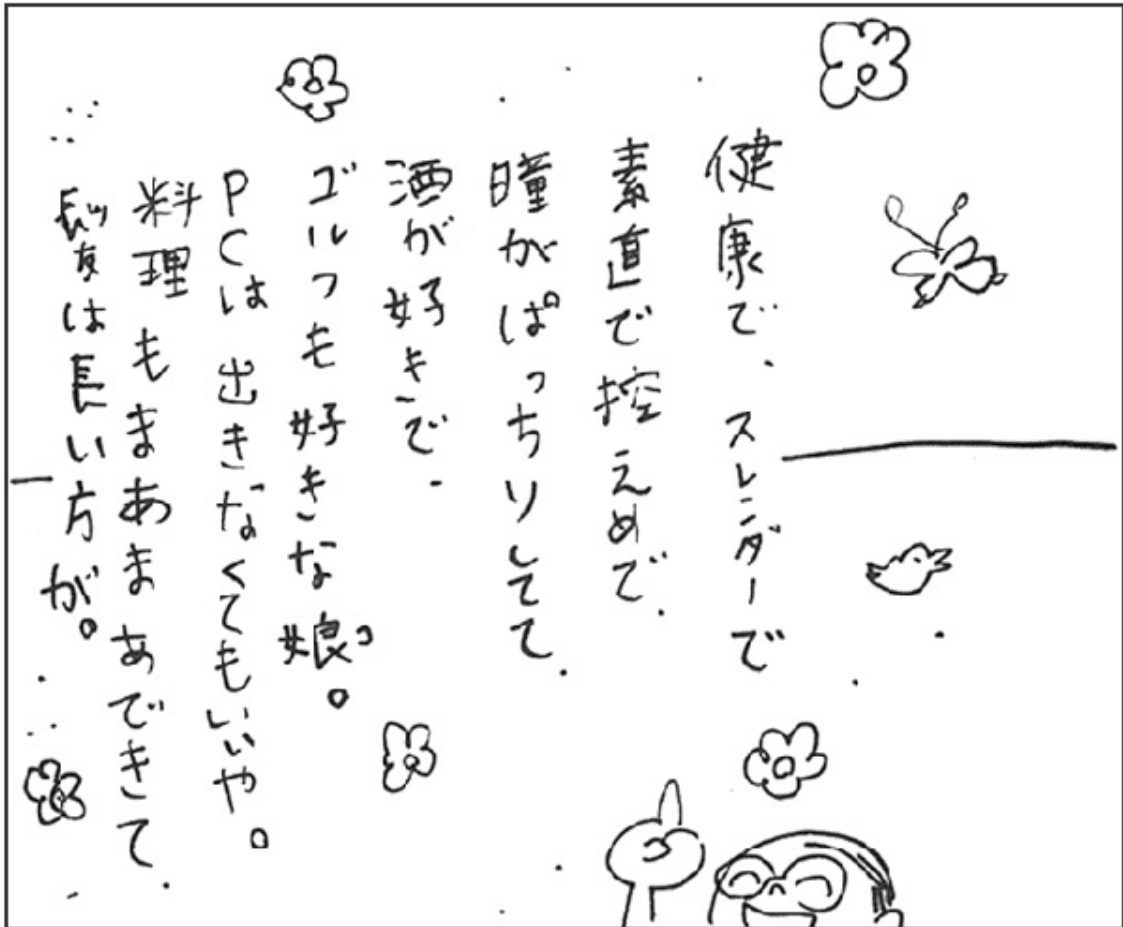 健康で、スレンダーで
素直で控えめで、
瞳がぱっちりしてて、
酒が好きで、
ゴルフも好きな娘。
コ
PCは出きなくてもいいや。
料理もまあまあできて
は長い方が。